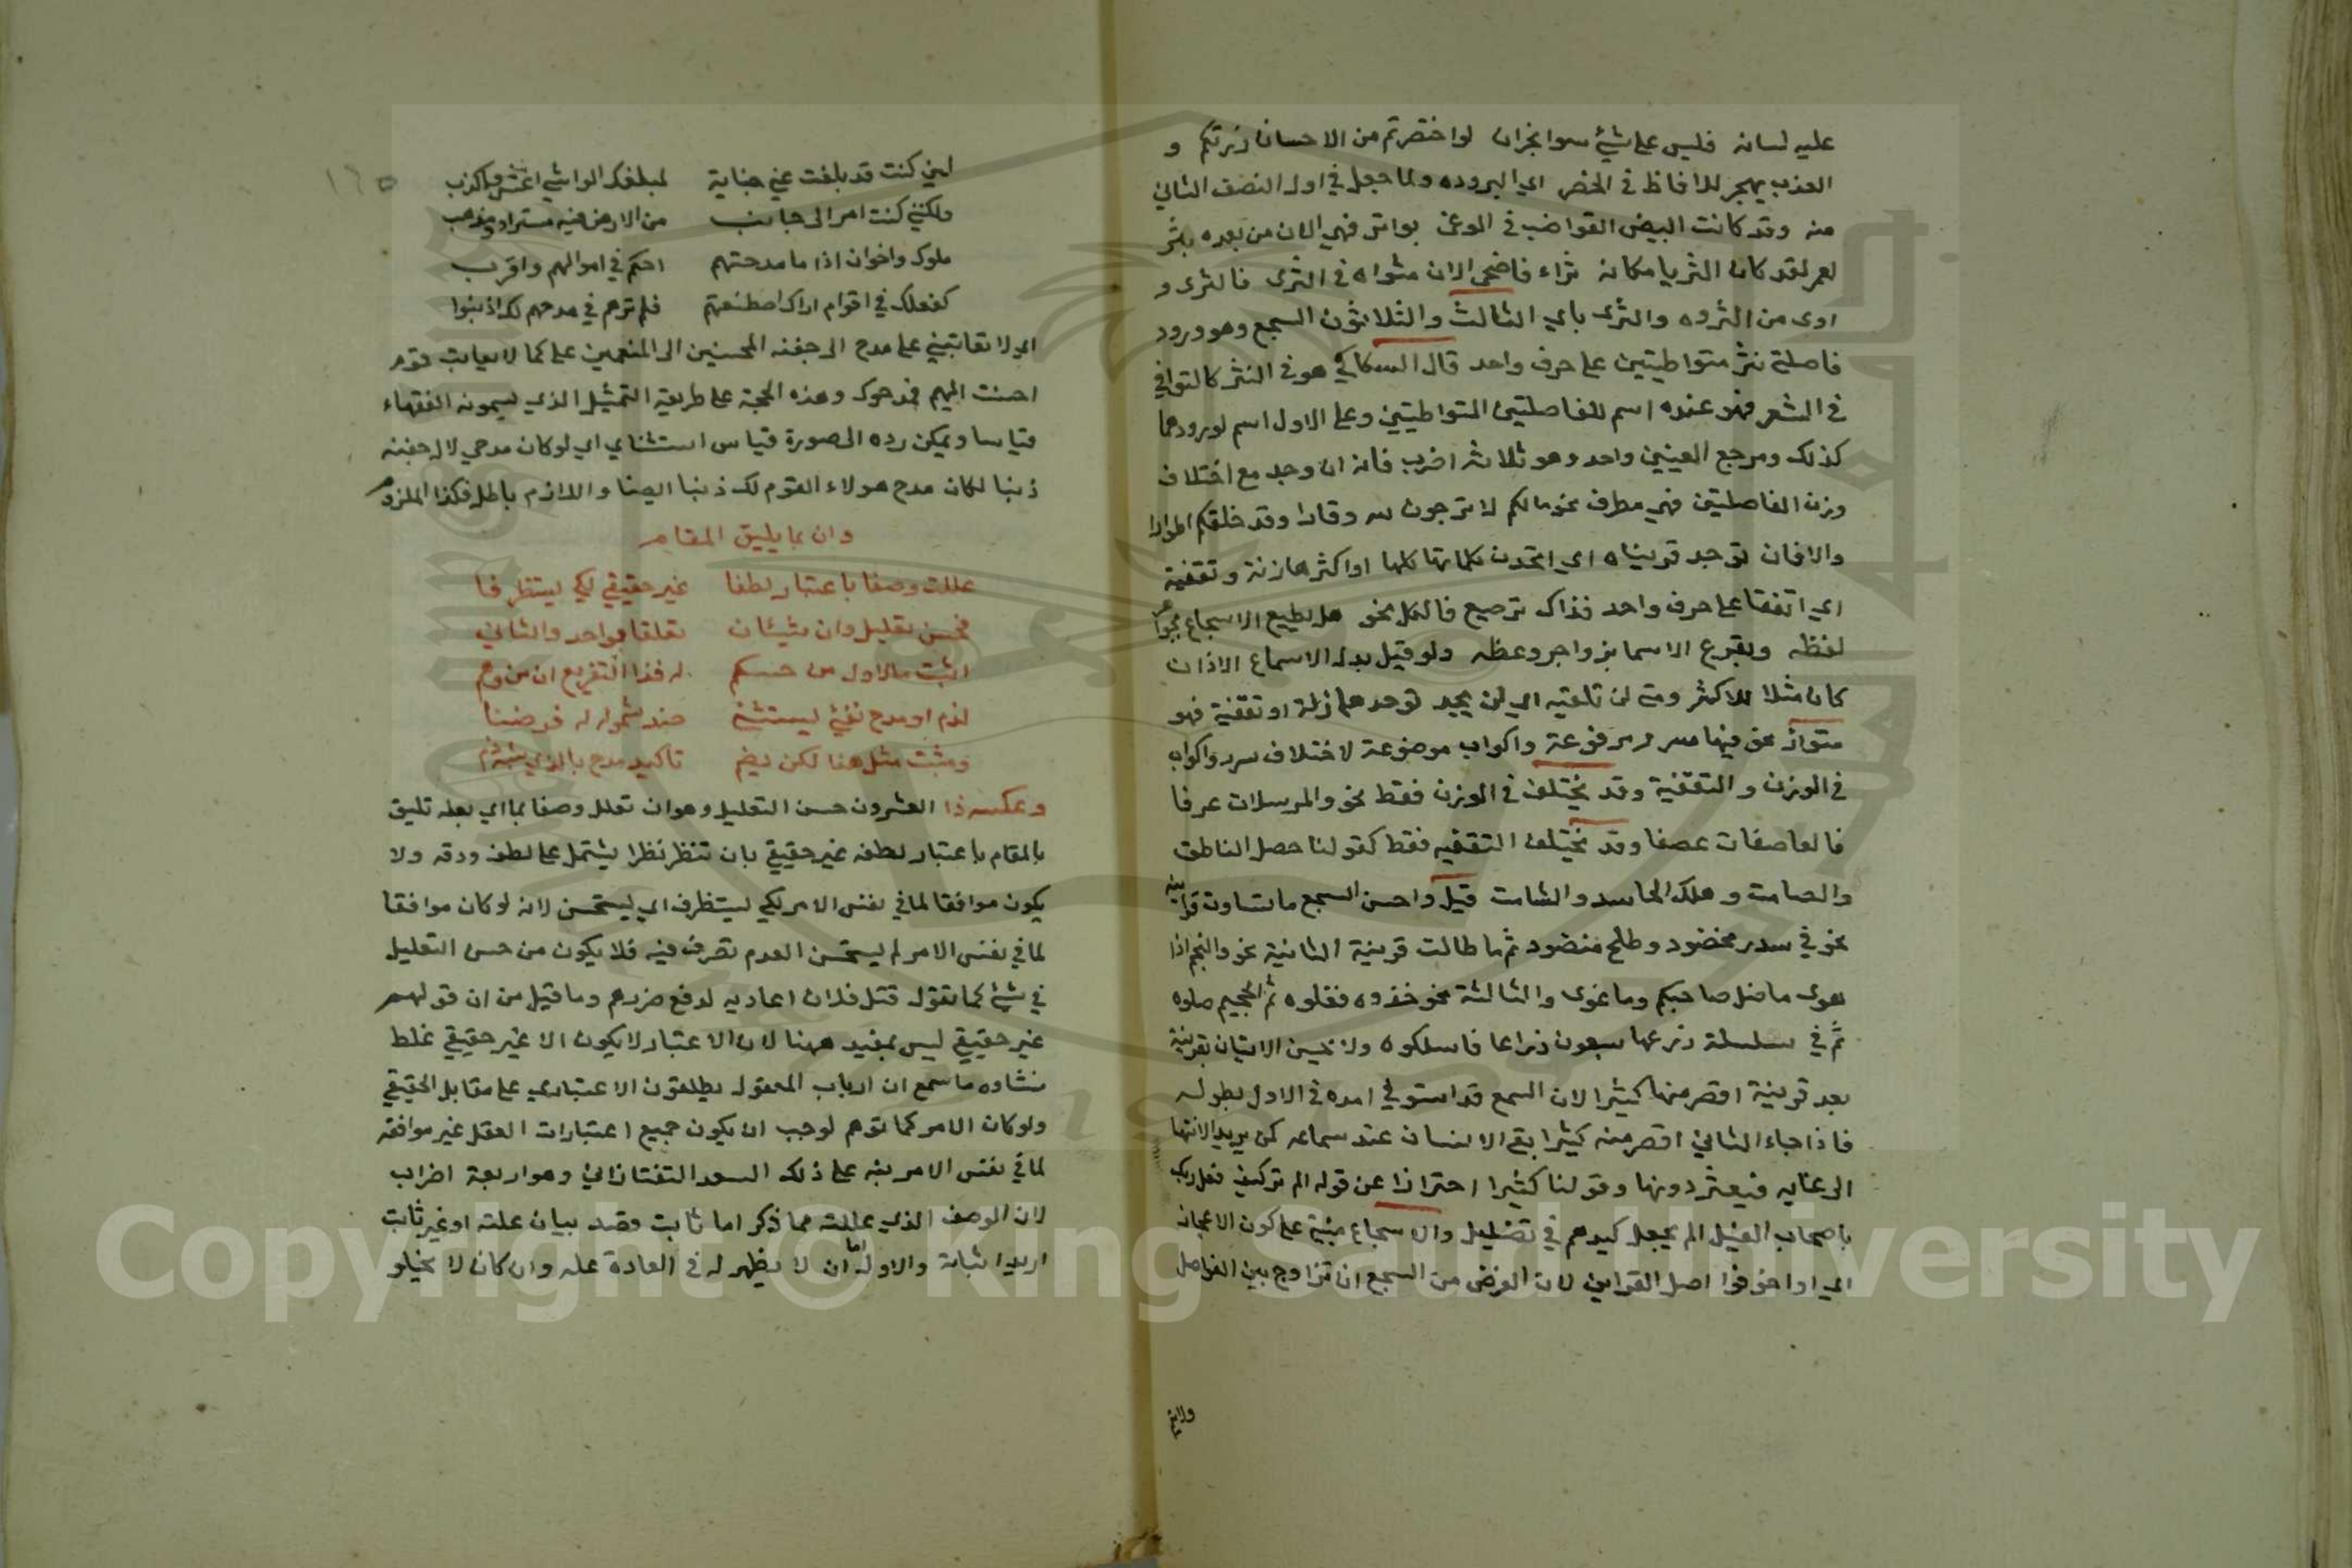 عليه لسانه فليس على شيء سواه بخزان لو اختصرتم من الاحسان زرتكم و
العذب يهجر للافاظ في الخصر اي البروده ولما جعل في اول النصف الثاني
منه وقد كانت البيض القواضب في الوغى بواتر فهي الان من بعده بتر
لعمر لقد كان الثريا مكانه ثراء فاضحى الان مثواه في الثرى فالثرى و
اوى من الثروه والثرى باي الثالث والثلاثون السجع وهو ورود
فاصلة نثر متواطيتين على حرف واحد قال السكاكي هو في النثر كالقوافي
في الشعر فهو عنده اسم للفاصلتين المتواطيتين وعلى الاول اسم لورودهما
كذلك ومرجع المعنيين واحد وهو ثلاثه اضرب فانه ان وجد مع اختلاف
وزن الفاصلتين فهي مطرف نحو مالكم لا ترجون لله وقارا وقد خلقكم اطوارا
والا فان توجد قرينتاه اي اتحدت كلماتها كلها او اكثرها زنة وتقفية
اي اتفقتا على حرف واحد فذاك ترصيع فالكل نحو هل يطبع الاسجاع بجواهر
لفظه ويقرع الاسماع بزواجر وعظه ولو قيل بدل الاسماع الاذان
كان مثلا للاكثر ومتى لن تلفيه اي لن يجد توحدهما زنة او تقفية فهو
متواز نحو فيها سرر مرفوعة واكواب موضوعة لاختلاف سرر واكواب
في الوزن والتقفية وقد يختلف في الوزن فقط نحو والمرسلات عرفا
فالعاصفات عصفا وقد يختلف التقفيه فقط كقولنا حصل الناطق
والصامت وهلك الحاسد والشامت قيل واحسن السجع ما تساوت قراينه
نحو في سدر مخضود وطلح منضود ثم ما طالت قرينة الثانية نحو والنجم اذا
هوى ما ضل صاحبكم وما غوى والثالثة نحو خذوه فغلوه ثم الجحيم صلوه
ثم في سلسلة ذرعها سبعون ذراعا فاسلكوه ولا يحسن الاتيان بقرينة
بعد قرينة اقصر منها كثيرا لان السمع قد استوفي امده في الاول بطوله
فاذا جاء الثاني اقصر منه كثيرا بقى الانسان عند سماعه كمن يريد الانتها
الى غايه فيعثر دونها وقولنا كثيرا احترازا عن قوله الم تر كيف فعل ربك
باصحاب الفيل الم يجعل كيدهم في تضليل والاسجاع مبنية على كون الاعجاز
اي اواخر فواصل القراين لان الغرض من السجع ان تزاوج بين الفواصل
١٦٥
لين كنت قد بلغت عني جناية لمبلغك الواشي اغش واكذب
ولكنني كنت امرا لي جانب من الارض فيه مستراد ومذهب
ملوك واخوان اذا ما مدحتهم احكم في اموالهم واقرب
كفعلك في اقوام اراك اصطنعتهم فلم ترهم في مدحهم لك اذنبوا
اي لا تعاتبني على مدح ال جفنه المحسنين الى المنعمين على كما لا يعاتب قوم
احسنت اليهم فمدحوك وهذه الحجة على طريقة التمثيل الذي يسمونه الفقهاء
قياسا ويمكن رده الى صورة قياس استثنائي اي لو كان مدحي لال جفنه
ذنبا لكان مدح هولاء القوم لك ذنبا ايضا واللازم باطل فكذا الملزوم
وان بما يليق المقام
عللت وصفا باعتبار لطفا غير حقيقي لكي يستظرفا
فحسن تعليل وان شيئان تعلقا بواحد والثاني
اثبت ما للاول من حكم له فذا التفريع ان من وهم
لذم او مدح نفي يستثنى ضد شموله له فرضنا
ومثبت مثل هنا لكن يضم تاكيد مدح بالذي يشبه ذم
وعكسه ذا العشرون حسن التعليل وهو ان تعلل وصفا بما اي بعلة تليق
بالمقام باعتبار لطفه غير حقيقي بان تنظر نظرا يشتمل على لطف ودقه ولا
يكون موافقا لما في نفس الامر لكي يستظرف اي يستحسن لانه لو كان موافقا
لما في نفس الامر لم يستحسن لعدم تصرف فيه فلا يكون من حسن التعليل
في شيء كما تقول قتل فلان اعاديه لدفع ضررهم وما قيل من ان قولهم
غير حقيقي ليس بمفيد ههنا لان الاعتبار لا يكون الا غير حقيقي غلط
منشاوه ما سمع ان ارباب المعقول يطلقون الاعتباري على مقابل الحقيقي
ولو كان الامر كما توهم لوجب ان يكون جميع اعتبارات العقل غير موافقه
لما في نفس الامر نبه على ذلك السعد التفتازاني وهو اربعة اضراب
لان الوصف الذي عللته مما ذكر اما ثابت وقصد بيان علته او غير ثابت
اريد اثباته والاول اما ان لا يظهر له في العادة علة وان كان لا يخلو
Copyright © King Saud University